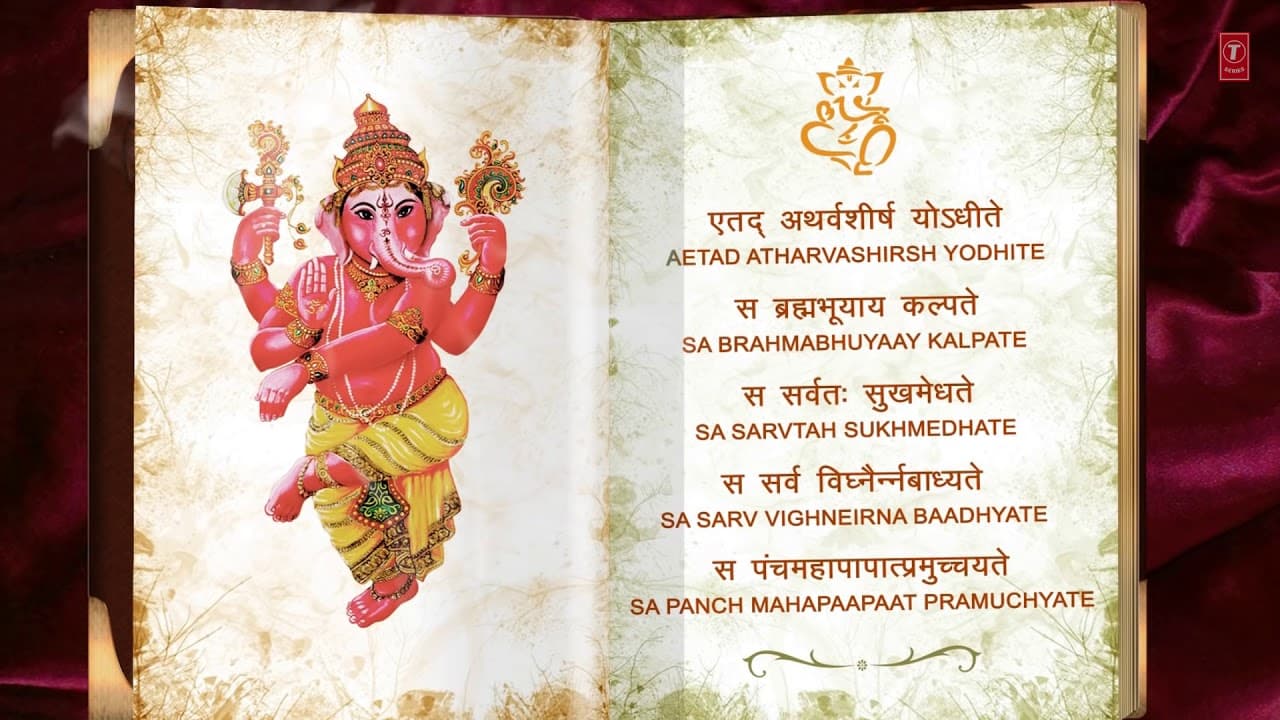 T
SERIES
एतद् अथर्वशीर्ष योऽधीते
AETAD ATHARVASHIRSH YODHITE
स ब्रह्मभूयाय कल्पते
SA BRAHMABHUYAAY KALPATE
स सर्वतः सुखमेधते
SA SARVTAH SUKHMEDHATE
स सर्व विघ्नैर्न्नबाध्यते
SA SARV VIGHNEIRNA BAADHYATE
स पंचमहापापात्प्रमुच्चयते
SA PANCH MAHAPAAPAAT PRAMUCHYATE